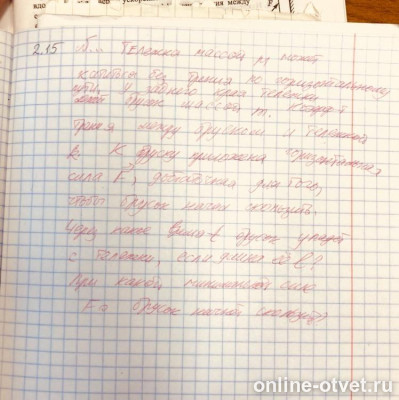 вдо
ускоре
ия между
2.15 N... Тележка массой M может
катиться без трения по горизонтальному
пути. У заднего края тележки
лежит брусок массой m. Коэфф-т
трения между бруском и тележкой
k. К бруску приложена горизонтальная
сила F, достаточная для того,
чтобы брусок начал скользить.
Через какое время t брусок упадет
с тележки, если длина её l?
При какой минимальной силе
F0 брусок начнёт скользить?
online-otvet.ru